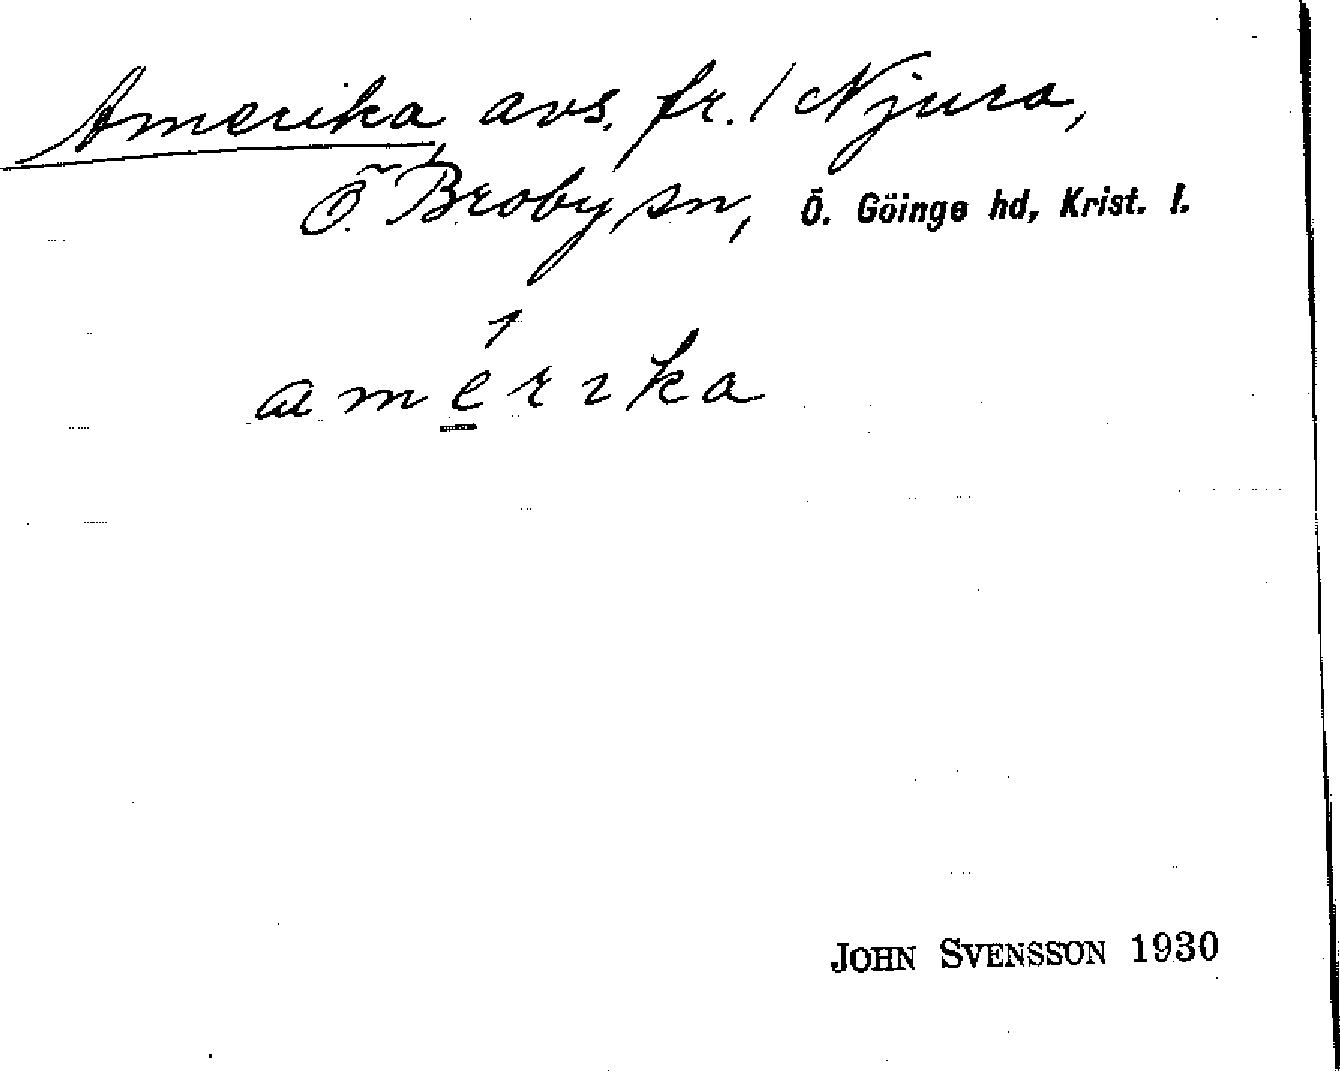 Amerika, avs. fr. / Njura,
Ö. Broby sn, Ö. Göinge hd, Krist. l.
amérika
JOHN SVENSSON 1930